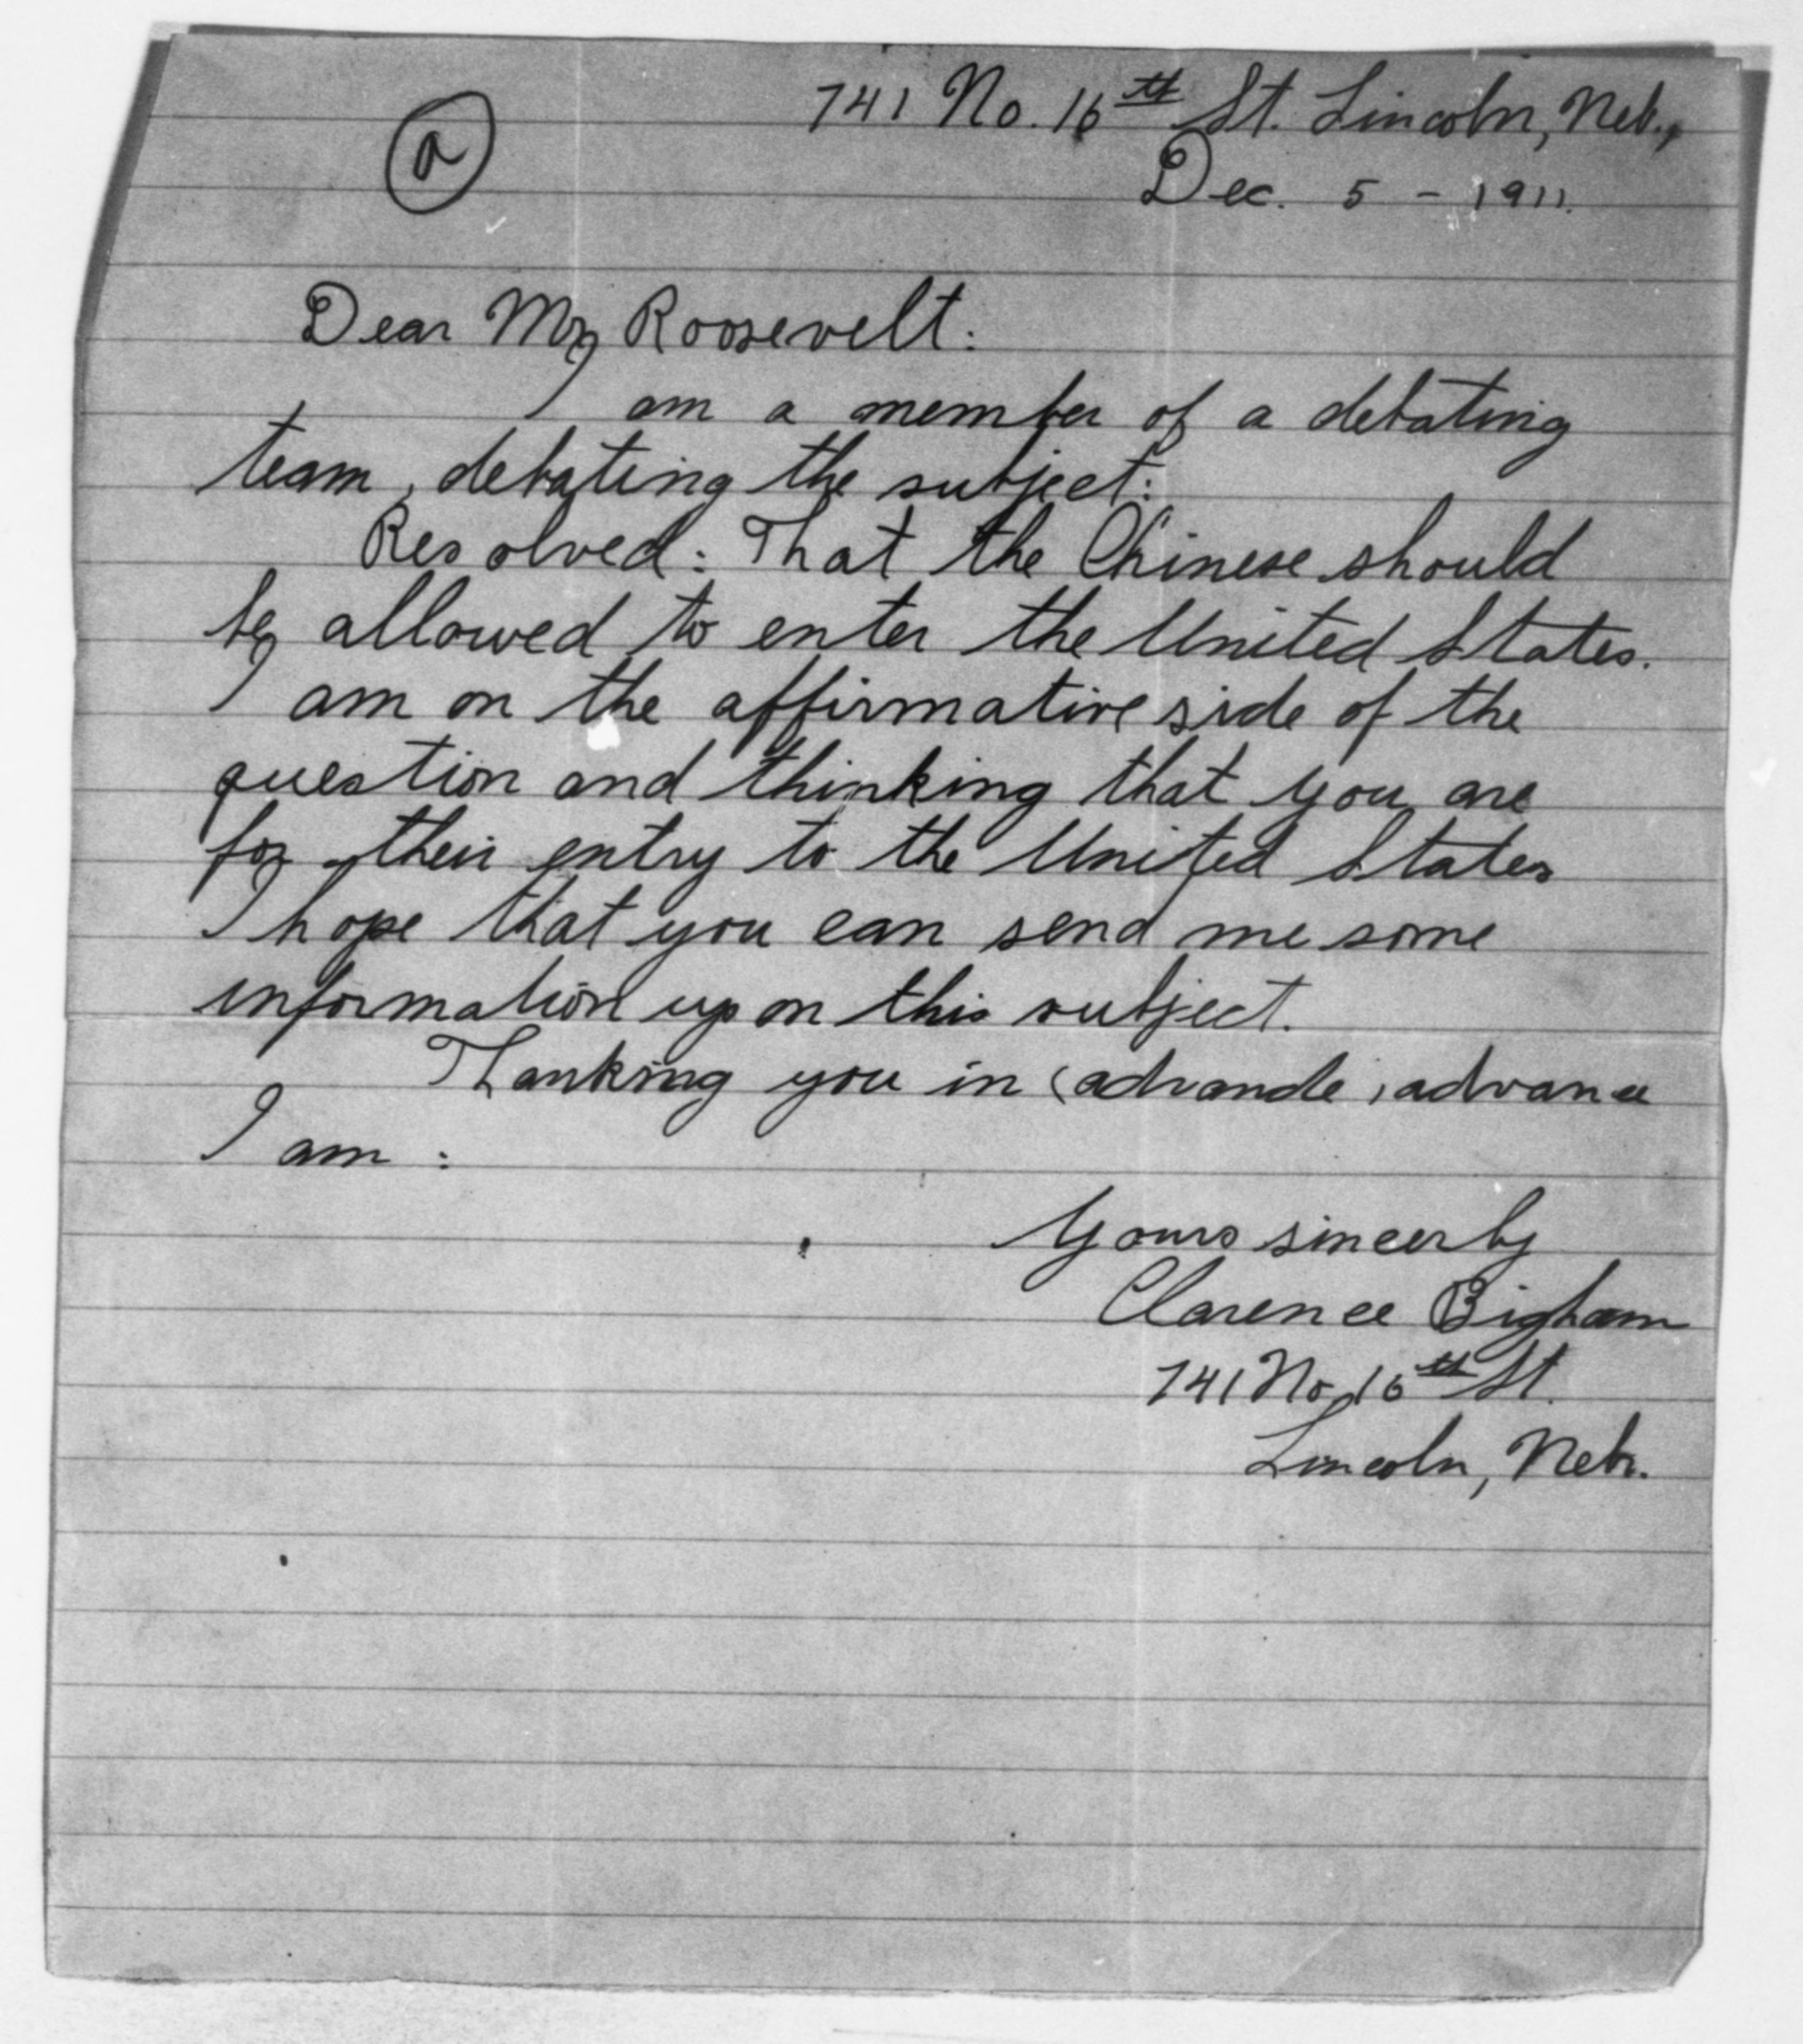 741 No. 16th St. Lincoln, Neb.,
a
Dec. 5 - 1911.
Dear Mr Roosevelt:
I am a member of a debating
team, debating the subject:
Resolved: That the Chinese should
be allowed to enter the United States.
I am on the affirmative side of the
question and thinking that you are
for their entry to the United States
I hope that you can send me some
information upon this subject.
Thanking you in (advande, advance
I am :
Yours sincerly
Clarence Bigham
741 No 16th St.
Lincoln, Nebr.